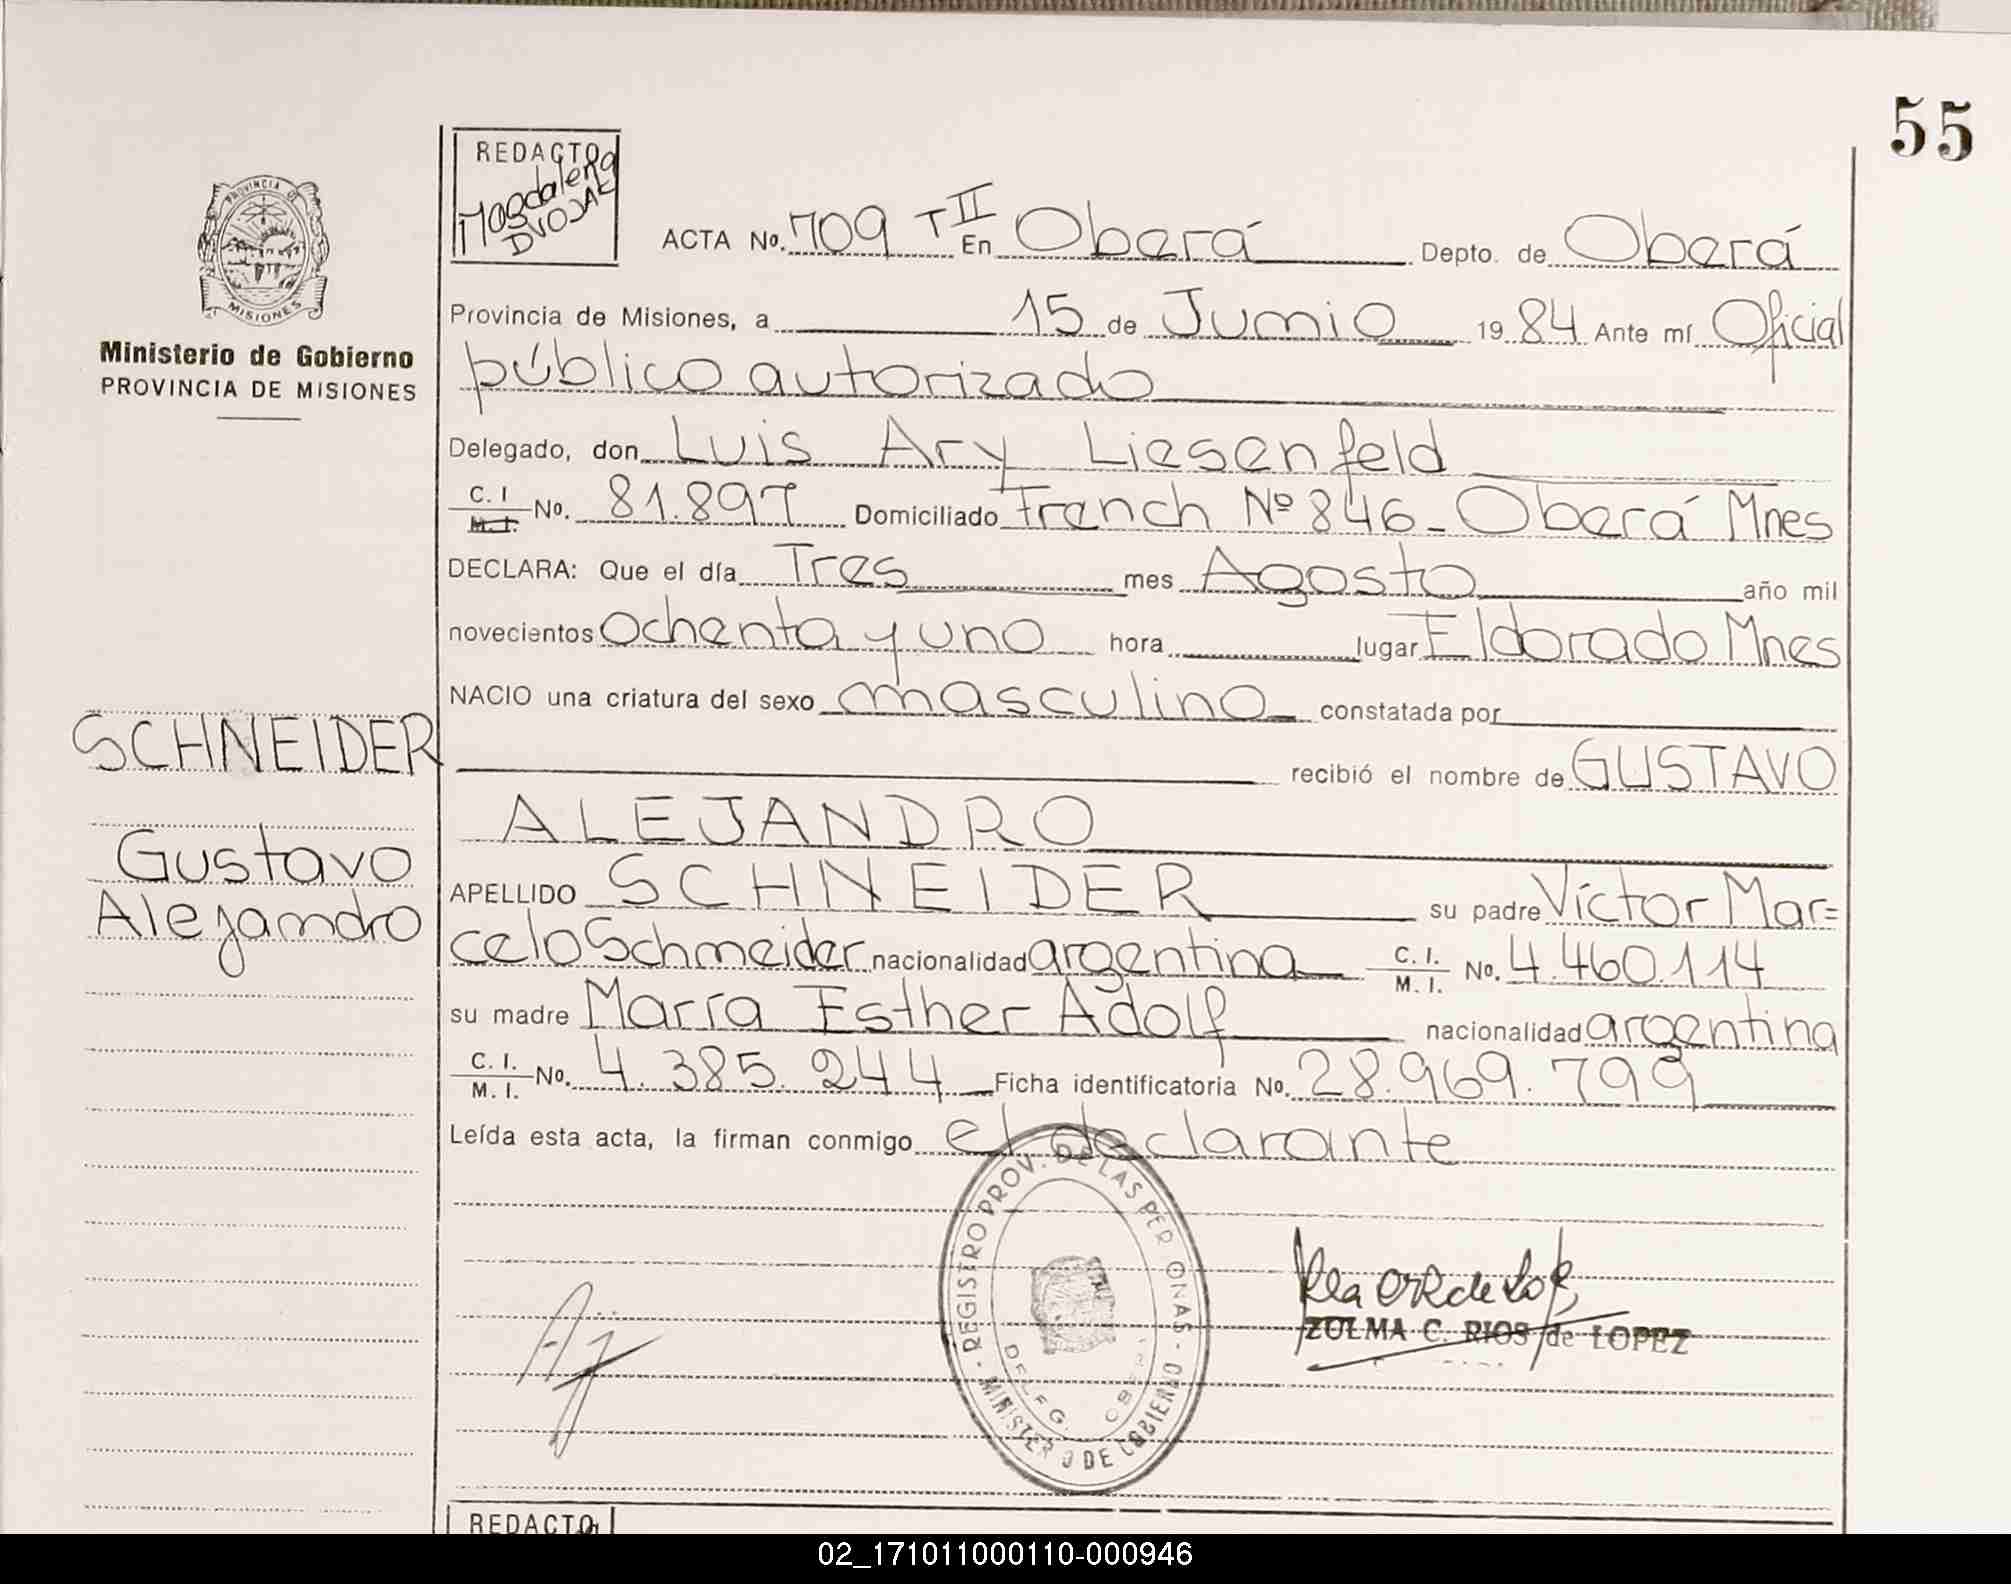 55
REDACTO
Magdalena
DVOJAK
PROVINCIA D
MISIONES
Ministerio de Gobierno
PROVINCIA DE MISIONES
ACTA No. 709 T II En Oberá Depto. de Oberá
Provincia de Misiones, a 15 de Junio 1984 Ante mí Oficial
público autorizado
Delegado, don Luis Ary Liesenfeld
C. I
M. I. No. 81.897 Domiciliado French Nº 846 - Oberá Mnes
DECLARA: Que el día Tres mes Agosto año mil
novecientos ochenta y uno hora lugar Eldorado Mnes
NACIO una criatura del sexo masculino constatada por
recibió el nombre de GUSTAVO
ALEJANDRO
APELLIDO SCHNEIDER su padre Víctor Mar=
celo Schneider nacionalidad argentina C. I.
M. I. No. 4.460.114
su madre María Esther Adolf nacionalidad argentina
C. I.
M. I. No. 4.385.244 Ficha identificatoria No. 28.969.799
Leída esta acta, la firman conmigo el declarante
SCHNEIDER
Gustavo
Alejandro
REGISTRO PROV. DE LAS PER ONAS - MINISTER O DE GOBIERNO
DELEG. OBE
ZULMA C. RIOS de LOPEZ
REDACTO
02_171011000110-000946